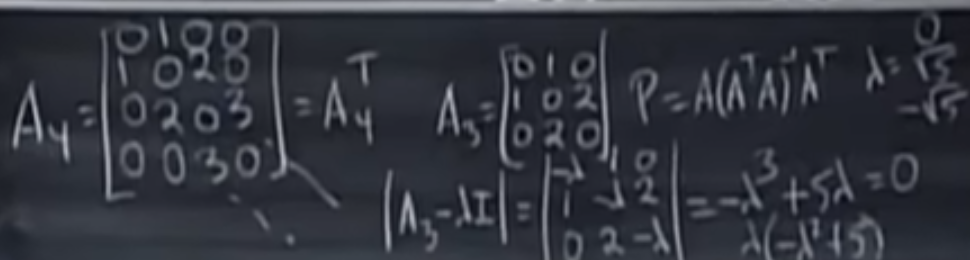 A₄ = [0 1 0 0; 1 0 2 0; 0 2 0 3; 0 0 3 0] = A₄ᵀ
A₃ = [0 1 0; 1 0 2; 0 2 0]
P = A(AᵀA)⁻¹Aᵀ
λ = 0, √5, -√5
|A₃ - λI| = |-λ 1 0; 1 -λ 2; 0 2 -λ| = -λ³ + 5λ = 0
λ(-λ² + 5)